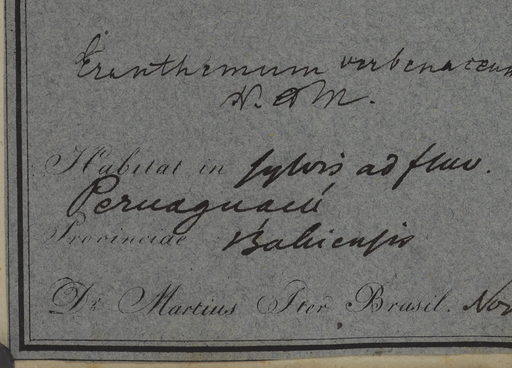 Eranthemum verbenaceum
N. & M.
Habitat in sylvis ad fluv.
Peruaguacú
Provinciae Bahiensis
Dr. Martius Iter Brasil. Nov